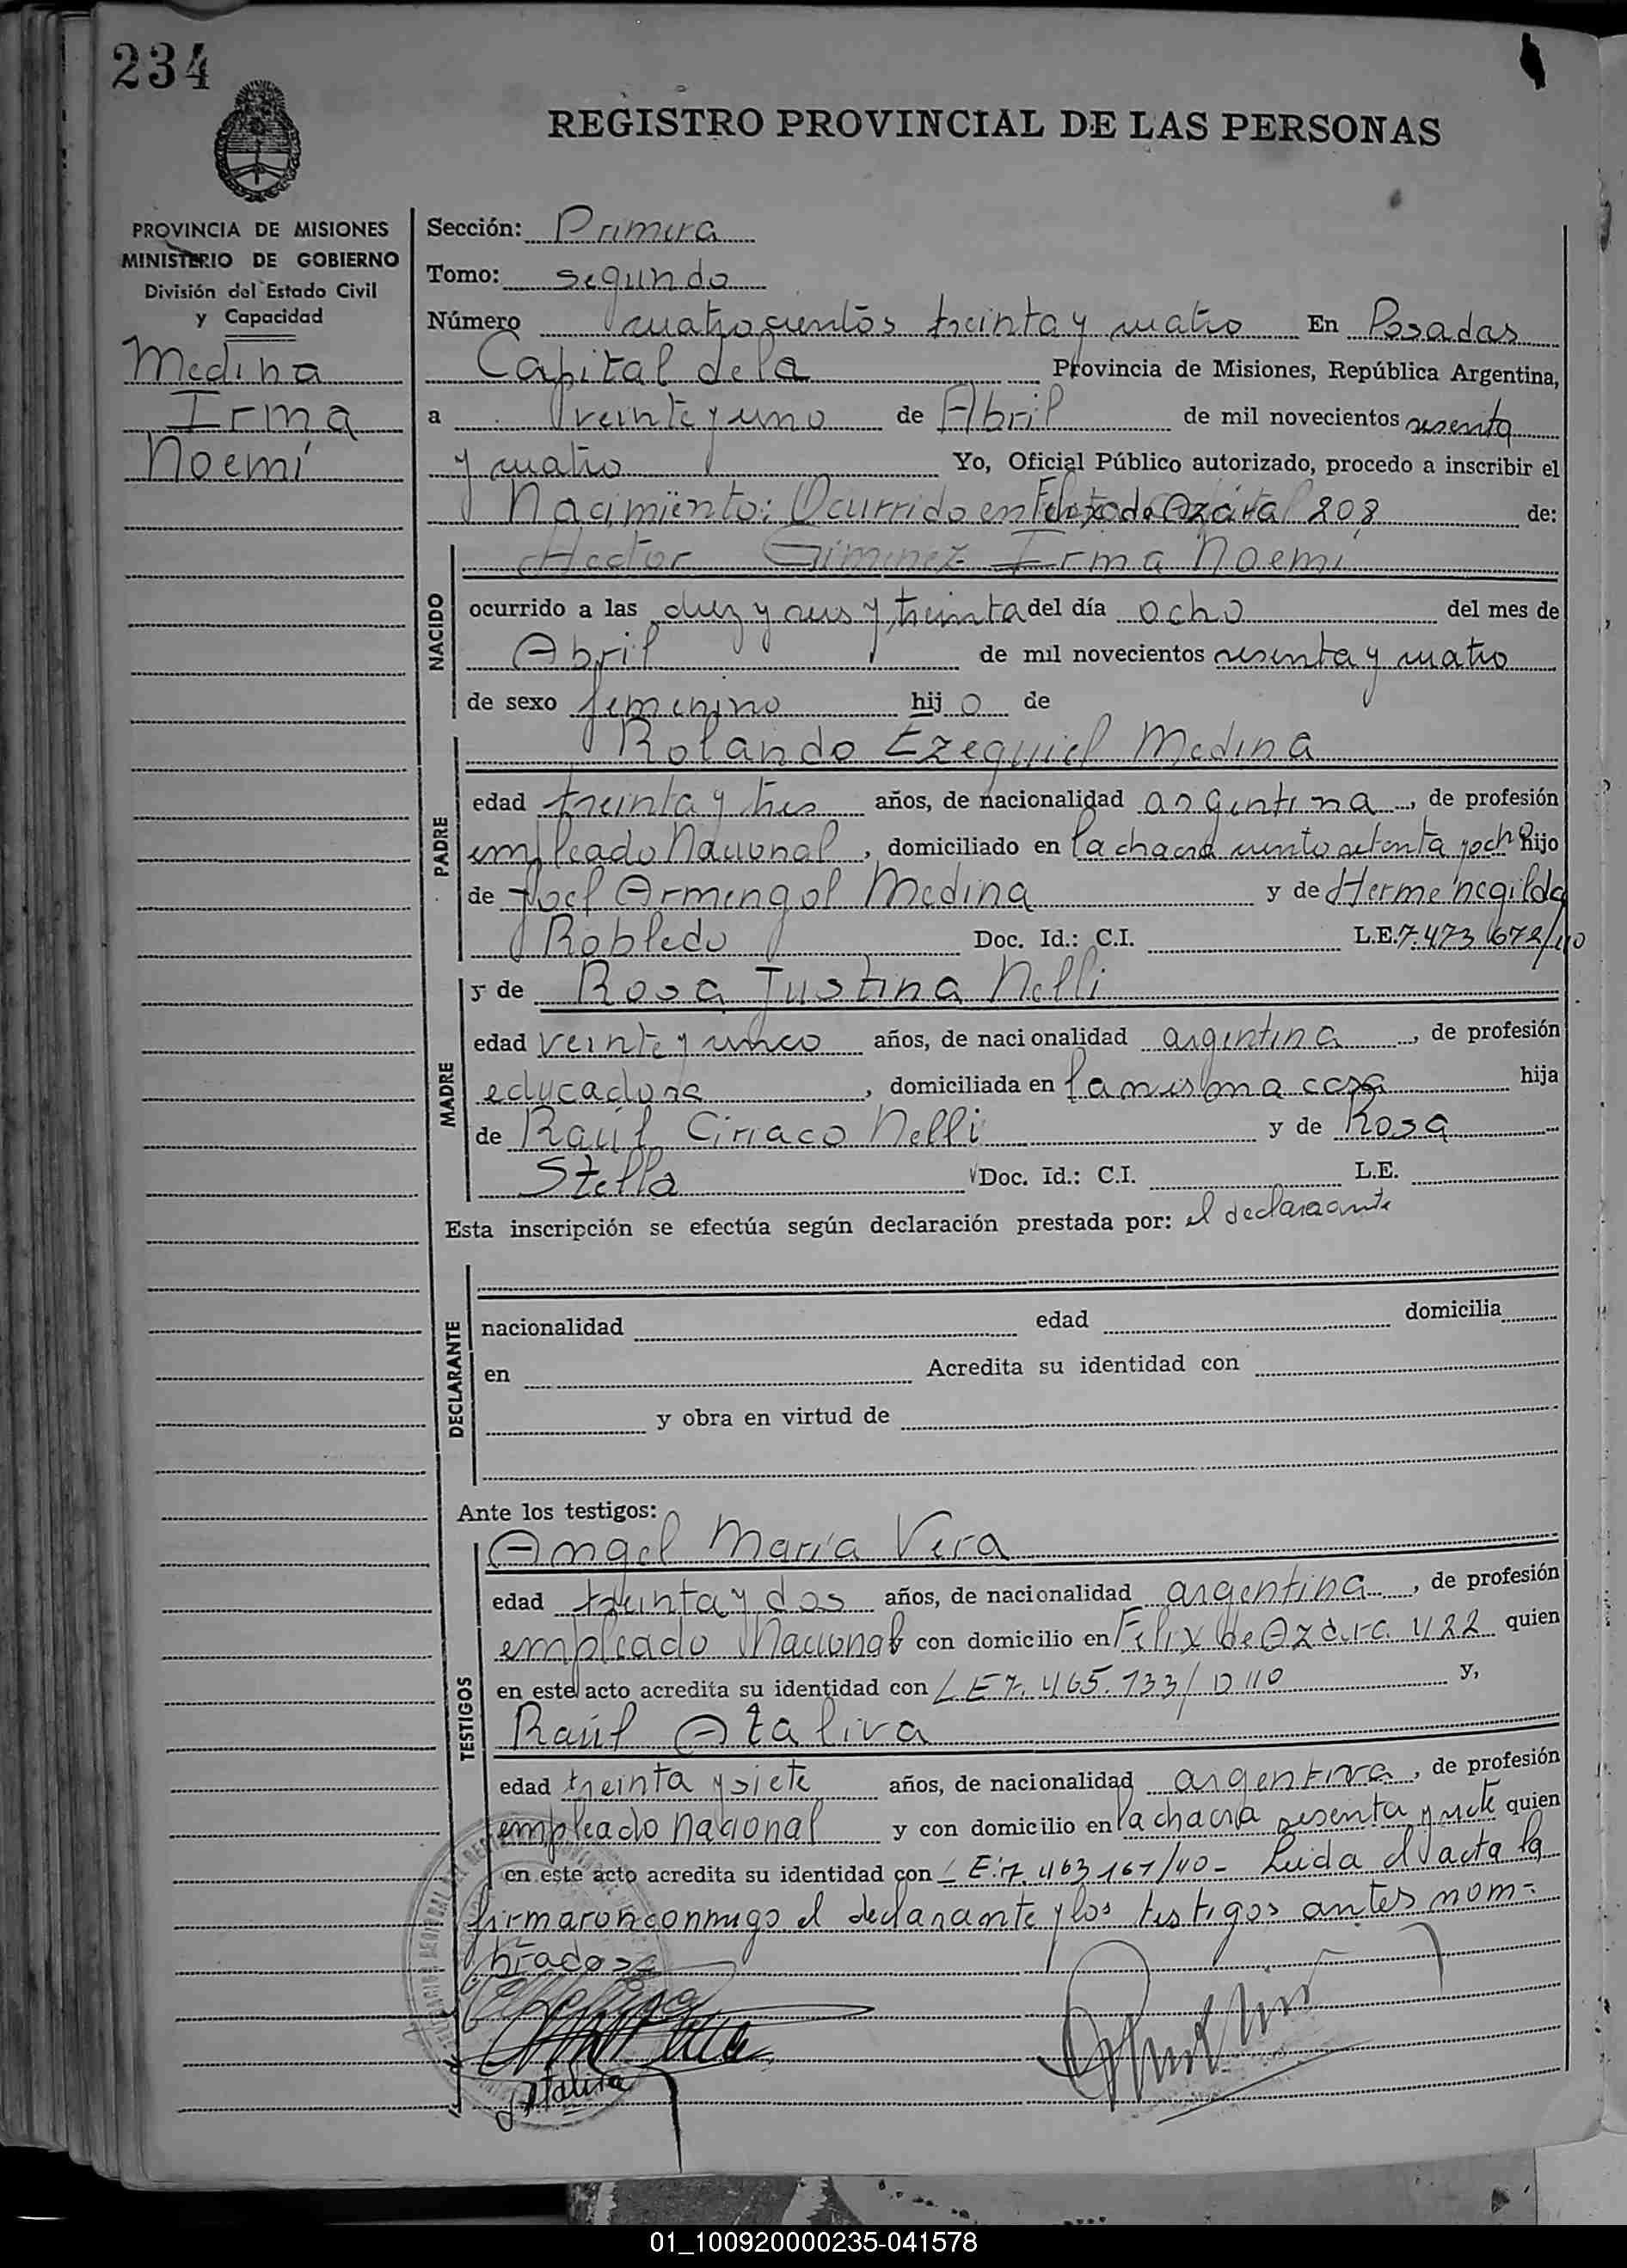 234
REGISTRO PROVINCIAL DE LAS PERSONAS
PROVINCIA DE MISIONES
MINISTERIO DE GOBIERNO
División del Estado Civil
y Capacidad
Medina
Irma
Noemí
Sección: Primera
Tomo: segundo
Número cuatrocientos treinta y cuatro En Posadas
Capital de la Provincia de Misiones, República Argentina,
a veinte y uno de Abril de mil novecientos sesenta
y cuatro Yo, Oficial Público autorizado, procedo a inscribir el
Nacimiento: Ocurrido en Felix de Azara 208 de:
NACIDO
Irma Noemi
ocurrido a las diez y seis y treinta del día ocho del mes de
Abril de mil novecientos sesenta y cuatro
de sexo femenino hijo de
PADRE
Rolando Ezequiel Medina
edad treinta y tres años, de nacionalidad argentina, de profesión
empleado Nacional, domiciliado en la chacra ciento setenta y och hijo
de Joel Armengol Medina y de Hermenegilda
Robledo Doc. Id.: C.I. L.E. 7.473 672/40
MADRE
y de Rosa Justina Nelli
edad veinte y cinco años, de nacionalidad argentina, de profesión
educadora, domiciliada en la misma casa hija
de Raúl Ciriaco Nelli y de Rosa
Stella Doc. Id.: C.I. L.E.
Esta inscripción se efectúa según declaración prestada por: el declaraante
DECLARANTE
nacionalidad edad domicilia
en Acredita su identidad con
y obra en virtud de
Ante los testigos:
TESTIGOS
Angel María Vera
edad treinta y dos años, de nacionalidad argentina, de profesión
empleado Nacional con domicilio en Felix de Azara 422 quien
en este acto acredita su identidad con LE 7. 465. 133/ D 40 y,
Raúl Ataliva
edad treinta y siete años, de nacionalidad argentina, de profesión
empleado nacional y con domicilio en la chacra sesenta y siete quien
en este acto acredita su identidad con L E: 7. 463 161/40 - Leida el acta la
firmaron conmigo el declarante y los testigos antes nom-
brados
Ataliva
01_100920000235-041578